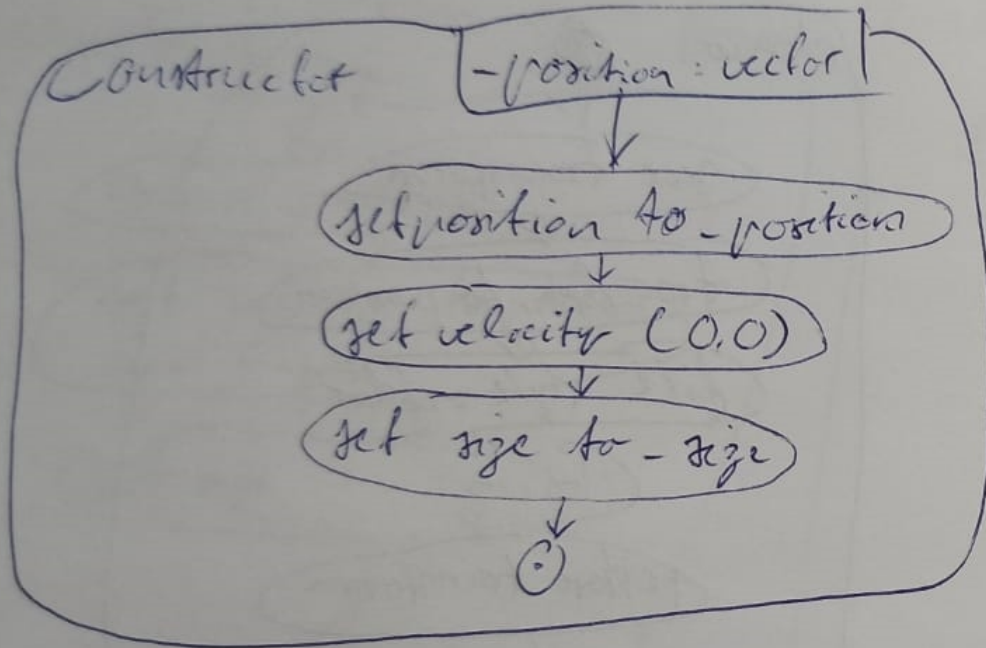 Constructor
_position : vector
set position to _position
set velocity (0,0)
set size to _size